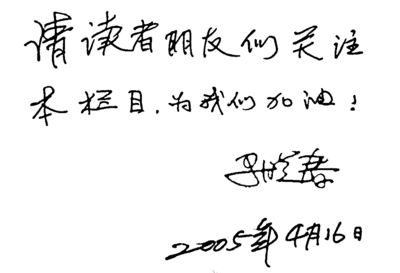 请读者朋友们关注
本栏目，为我们加油！
2005年4月16日